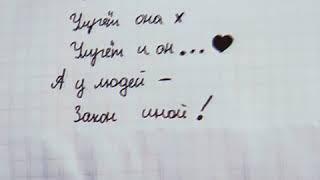 Умрёт она х
Умрёт и он... ♥
А у людей –
Закон иной!